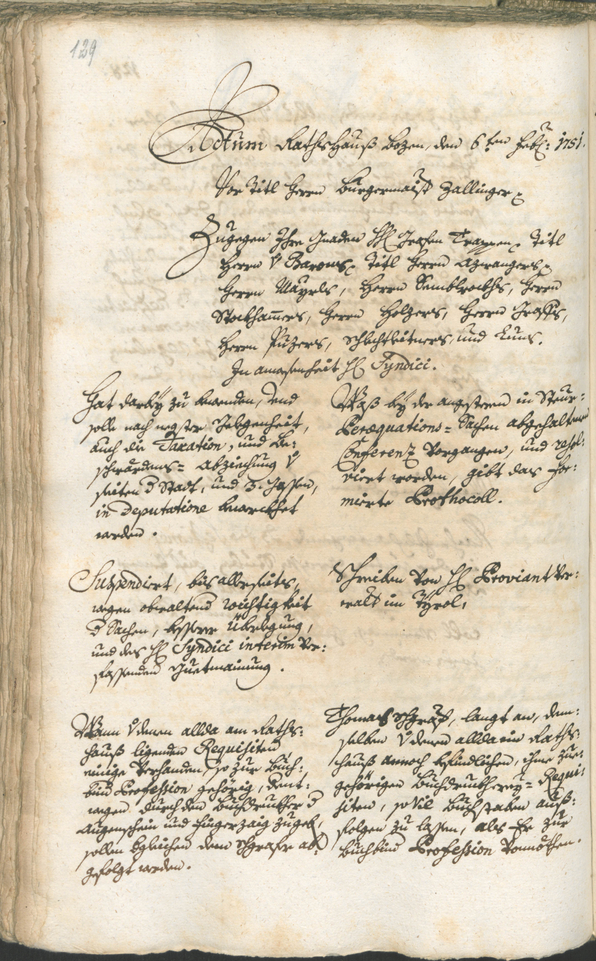 139
Actum Rathshauß Bozen, den 6ten Feb: 1751.
Vor Titl Herrn Burgermaist Zallinger
Zugegen Ihre Gnaden H Grafen Trapen, Titl
Herrn V Barons, Titl Herrn Azwangers,
Herrn Mayrls, Herrn Semblrockhs, Herrn
Stockhamers, Herrn Holzers, Herrn Graffs,
Herrn Puzers, Schlechtleitners, und Kuns.
In anwesenheit H Syndici.
Hat darbey zu bewenden, und
solle nach negster Gelegenheit,
auch die Taxation, und Be-
schwärdens- Abziechung
seiten Stadt, und
in Deputatione
werden.
Waß bey der angestern in Steur-
Peraequations- Sachen abgehaltenen
Conferenz Vorgangen, und resol-
virt worden, gibt das for-
mierte Prothocoll.
Suspendiert, bis allerseits,
wegen obwaltend wichtigkeit
Sachen, besserer Überlegung,
und des H Syndici interim ver-
fassenden Guetmainung.
Schreiben von H Proviant ver-
walt im Tyrol,
Wann V denen allda am Raths-
hauß ligenden Requisiten
einige verhanden, so zur Buch-
bind Profession gehörig, dent-
wegen durch den Buchdrucker
Augenschein und fingerzaig zugeb,
sollen dem abgefolgt werden.
Thomas langt an, dem-
selben V denen allda im Raths-
hauß annoch befindlichen, ihme zue-
gehörigen Buechdruckerey- Requi-
siten, sovil Buchstaben auß-
folgen zu lassen, als Er zur
Buchbind Profession vonnöthen.